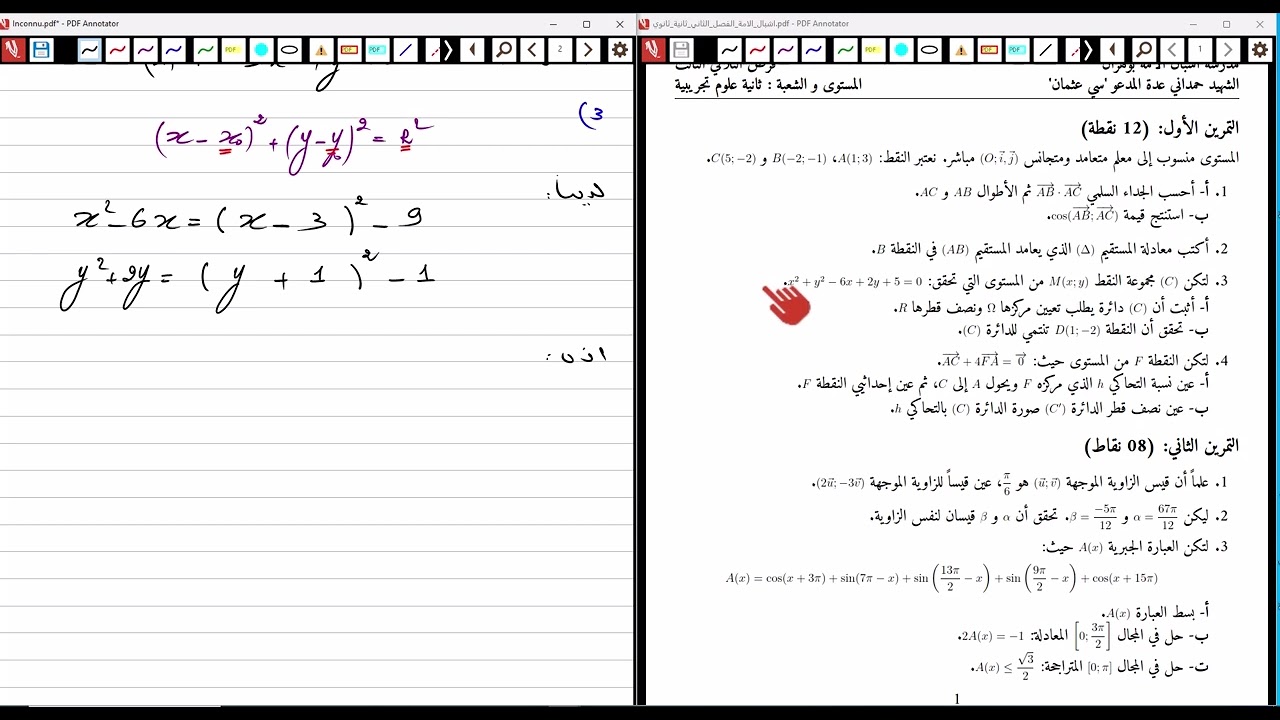 Inconnu.pdf* - PDF Annotator
2
3)
(x - x₀)² + (y - y₀)² = R²
لدينا:
x² - 6x = (x - 3)² - 9
y² + 2y = (y + 1)² - 1
اذن:
اشبال_الامة_الفصل_الثاني_ثانية_ثانوي.pdf - PDF Annotator
1
الشهيد حمداني عدة المدعو 'سي عثمان' المستوى و الشعبة : ثانية علوم تجريبية
التمرين الأول: (12 نقطة)
المستوى منسوب إلى معلم متعامد ومتجانس (O; i⃗, j⃗) مباشر. نعتبر النقط: A(1; 3)، B(−2; −1) و C(5; −2).
1. أ- أحسب الجداء السلمي AB⃗ · AC⃗ ثم الأطوال AB و AC.
ب- استنتج قيمة cos(AB⃗; AC⃗).
2. أكتب معادلة المستقيم (Δ) الذي يعامد المستقيم (AB) في النقطة B.
3. لتكن (C) مجموعة النقط M(x; y) من المستوى التي تحقق: x² + y² − 6x + 2y + 5 = 0.
أ- أثبت أن (C) دائرة يطلب تعيين مركزها Ω ونصف قطرها R.
ب- تحقق أن النقطة D(1; −2) تنتمي للدائرة (C).
4. لتكن النقطة F من المستوى حيث: AC⃗ + 4FA⃗ = 0⃗.
أ- عين نسبة التحاكي h الذي مركزه F ويحول A إلى C، ثم عين إحداثيي النقطة F.
ب- عين نصف قطر الدائرة (C′) صورة الدائرة (C) بالتحاكي h.
التمرين الثاني: (08 نقاط)
1. علماً أن قيس الزاوية الموجهة (u⃗; v⃗) هو π/6، عين قيساً للزاوية الموجهة (2u⃗; −3v⃗).
2. ليكن α = 67π/12 و β = −5π/12. تحقق أن α و β قيسان لنفس الزاوية.
3. لتكن العبارة الجبرية A(x) حيث:
A(x) = cos(x + 3π) + sin(7π − x) + sin(13π/2 − x) + sin(9π/2 − x) + cos(x + 15π)
أ- بسط العبارة A(x).
ب- حل في المجال [0; 3π/2] المعادلة: 2A(x) = −1.
ت- حل في المجال [0; π] المتراجحة: A(x) ≤ √3/2.
1